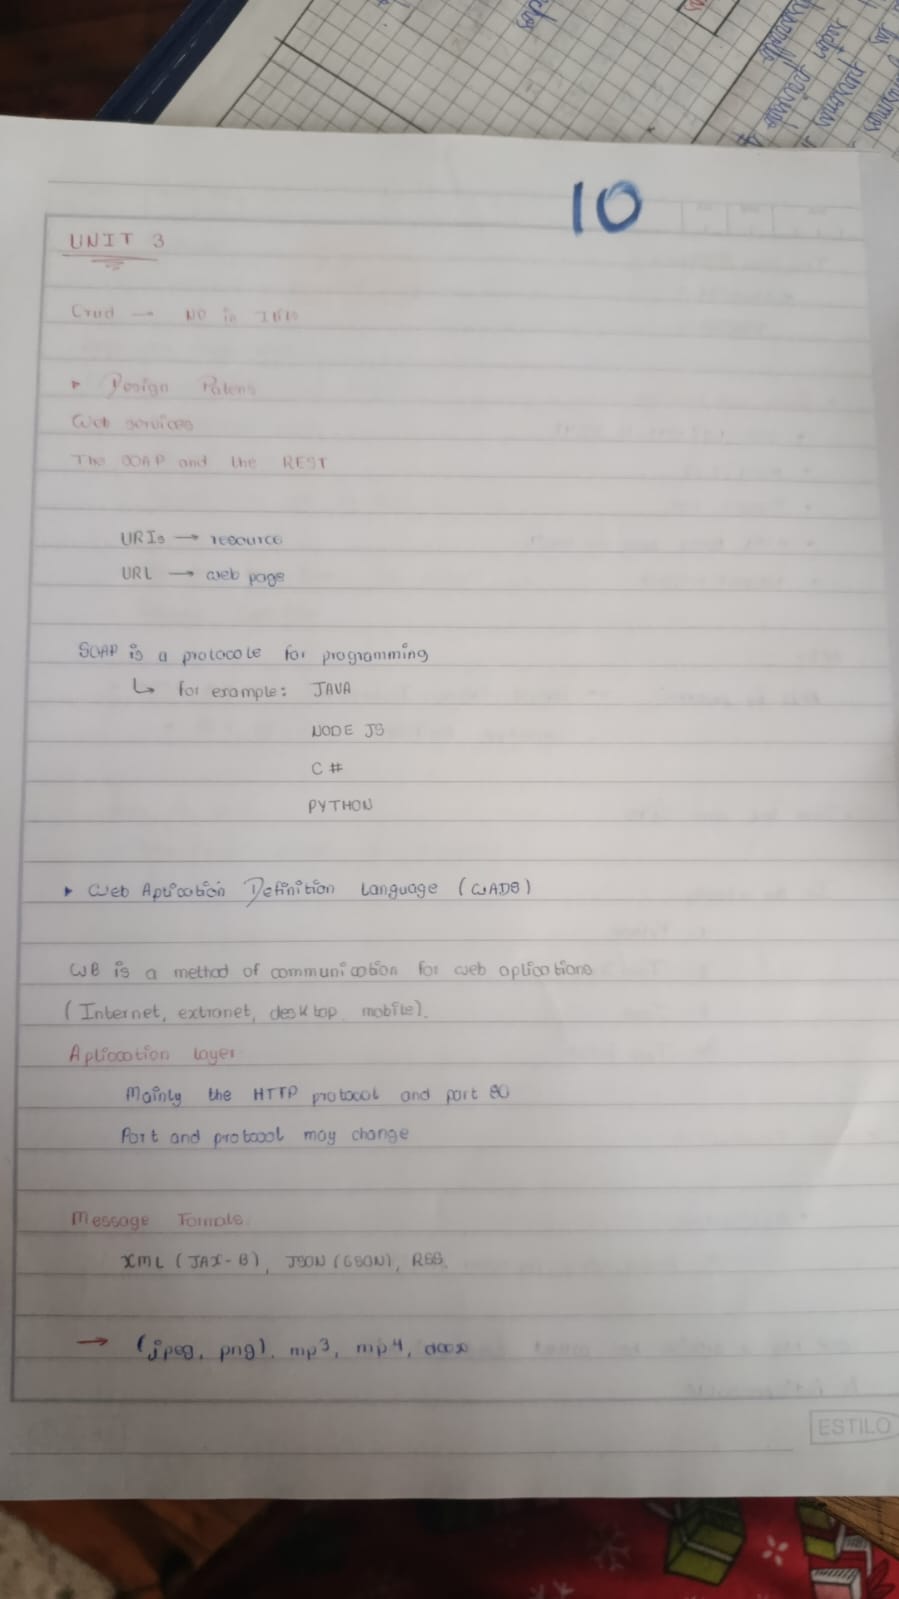 10
UNIT 3
Crud → NO in
Design Patens
Web services
The SOAP and the REST
URIs → resource
URL → web page
SOAP is a protocole for programming
↳ for example: JAVA
NODE JS
C #
PYTHON
▸ Web Aplication Definition Language (WADS)
WB is a method of communication for web aplications
(Internet, extranet, desktop, mobile).
Aplication layer
Mainly the HTTP protocol and port 80
Port and protocol may change
Message Formats.
XML (JAX-B), JSON (GSON), RSS.
→ (jpeg, png), mp3, mp4, docx
ESTILO